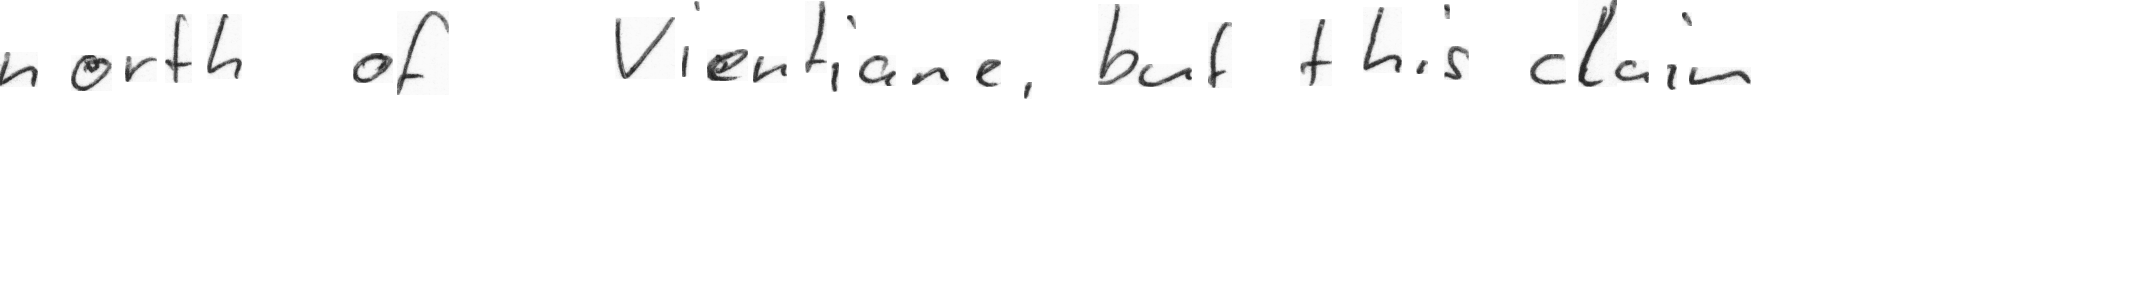 north of Vientiane, but this claim